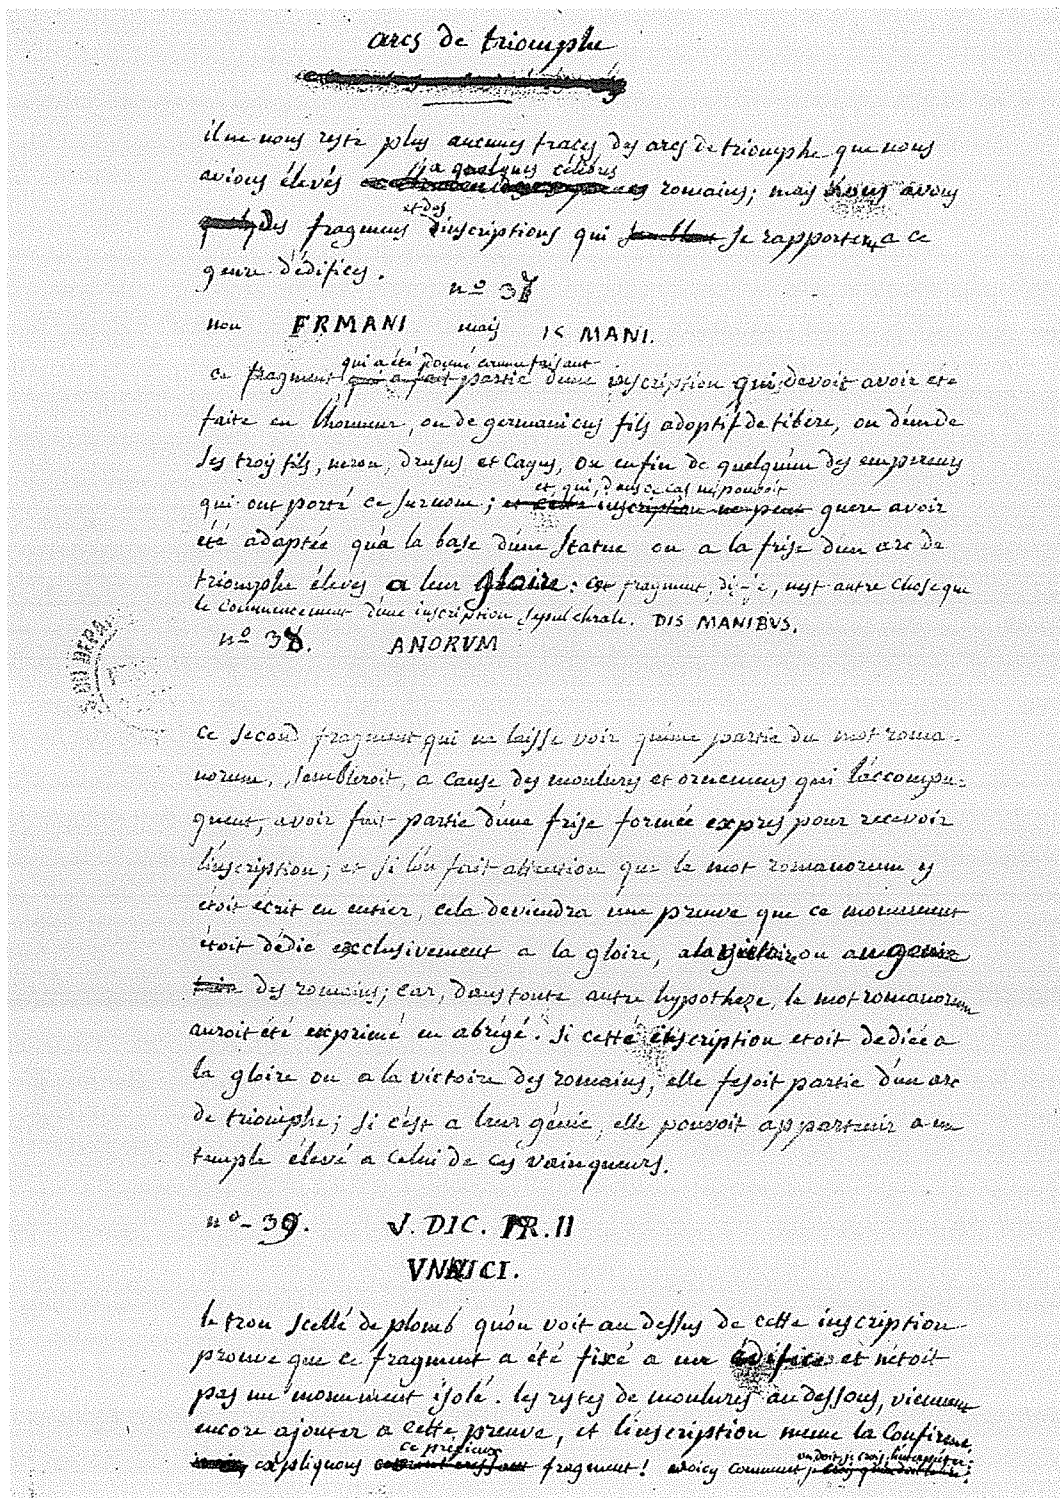 arcs de triomphe
il ne nous reste plus aucunes traces des arcs de triomphe que nous
jja quelques célébres
avions élevés romains; mais nous avons
et des
des fragmens d'inscriptions qui se rapportent a ce
genre d'édifices.
n° 37
non FRMANI mais IS MANI.
qui a été donné comme faisant
ce fragment qui a fait partie d'une inscription qui devoit avoir été
faite en l'honneur, ou de germanicus fils adoptif de tibére, ou d'un de
ses troys fils, neron, drusus et Cayus, ou enfin de quelqu'un des empereurs
et qui, dans ce cas n'pouvoit
qui ont porté ce surnom; et cette inscription ne peut guere avoir
été adaptée qu'à la base d'une statue ou a la frise d'un arc de
triomphe élevés a leur gloire: cet fragment, dis-je, n'est autre chose que
le commencement d'une inscription sepulchrale. DIS MANIBUS.
n° 38. ANORUM
S DU DEPA
ce second fragment qui ne laisse voir qu'une partie du mot roma-
norum, sembleroit, a cause des moulures et ornemens qui l'accompa-
gnent, avoir fait partie d'une frise formée exprès pour recevoir
l'inscription; et si l'on fait attention que le mot romanorum y
étoit écrit en entier, cela deviendra une preuve que ce monument
étoit dédié exclusivement a la gloire, a la victoire ou au genie
des romains; car, dans toute autre hypotheze, le mot romanorum
auroit été exprimé en abrégé. si cette inscription etoit dediée a
la gloire ou a la victoire des romains, elle fesoit partie d'un arc
de triomphe; si c'est a leur génie, elle pouvoit appartenir a un
temple élevé a celui de ces vainqueurs.
n° 39. V. DIC. PR. II
VNNICI.
le trou scellé de plomb qu'on voit au dessus de cette inscription
prouve que ce fragment a été fixé a un édifice et n'étoit
pas un monument isolé. les restes de moulures au dessous, viennent
encore ajouter a cette preuve, et l'inscription meme la confirme.
ce précieux on doit, je crois, l'interpréter:
expliquons fragment! voicy comment